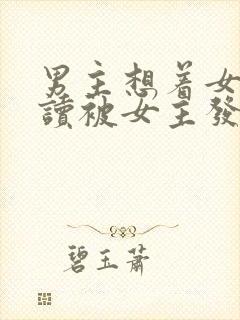 男主想着女
讀被女主發
碧玉蕭